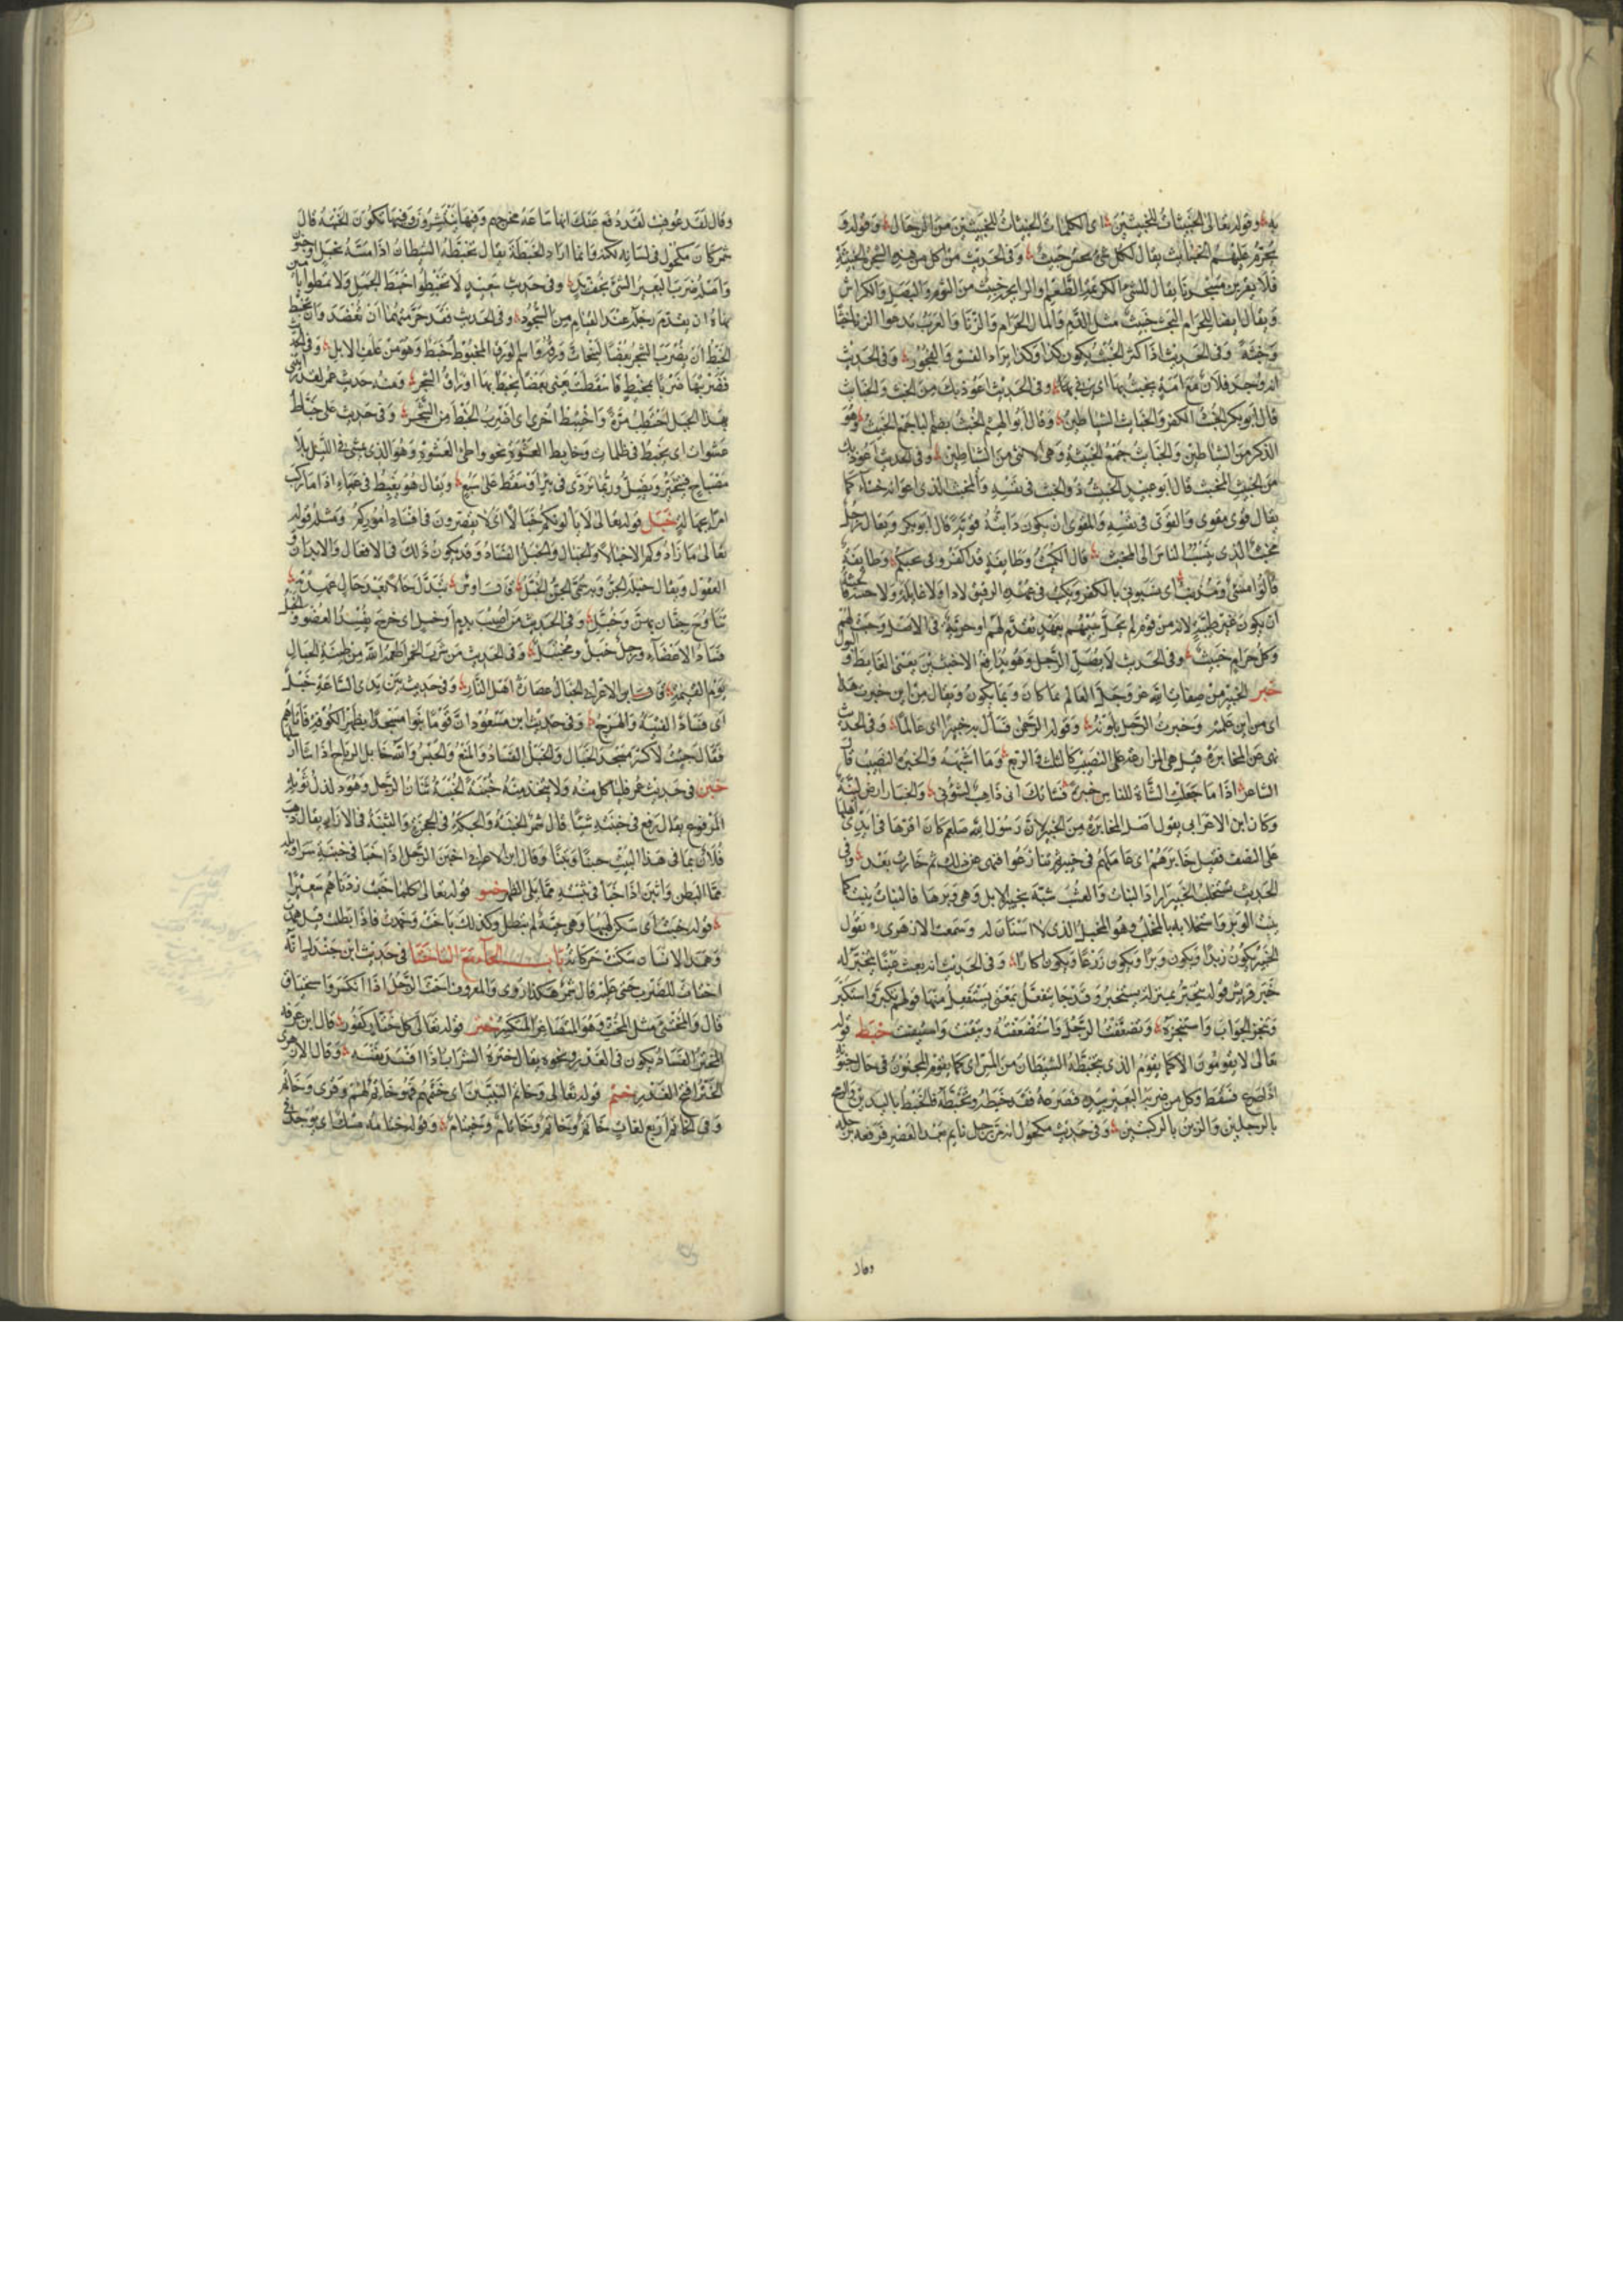 به وقوله تعالى الخبيثات للخبيثين اى الكلمات الخبيثات للخبيثين من الرجال وقوله و
يحرم عليهم الخبائث يقال لكل شئ نجس خبيث وفى الحديث من اكل من هذه الشجرة الخبيثة
فلا يقربن مسجدنا يقال للشئ الكريه الطعم او الرايحة خبيث من الثوم والبصل والكراث
ويقال ايضا للحرام البحت خبيث مثل الدم والمال الحرام والزنا والعرب تدعوا الزنا خبثا
وخبثة وفى الحديث اذا كثر الخبث يكون كذا وكذا يراد الفسق والفجور وفى الحديث
انه وجد فلان مع امة يخبث بها اى يزنى بها وفى الحديث اعوذ بك من الخبث والخبائث
قال ابو بكر الخبث الكفر والخبائث الشياطين وقال ابو الهيثم الخبث بضم الباء جمع الخبيث وهو
الذكر من الشياطين والخبائث جمع الخبيثة وهى الانثى من الشياطين وفى الحديث اعوذ بك
من الخبيث المخبث قال ابو عبيد الخبيث ذو الخبث فى نفسه والمخبث الذى اعوانه خبثاء كما
يقال قوى مقوى والقوى فى نفسه والمقوى ان يكون دابته قوية قال ابو بكر ويقال رجل
مخبث الذى ينسب الناس الى الخبث قال الكميت وطايفة قد اكفرونى بحبكم وطايفة
قالوا مسئ ومذنب اى نسبونى بالكفر ويكتب فى عهدة الرقيق لا داء ولا غايلة ولا خبثة فالخبثة
ان يكون غير طيبة لانه من قوم لم يحل سبيهم بعهد تقدم لهم او حرية فى الاصل وجبت لهم
وكل حرام خبيث وفى الحديث لا يصل الرجل وهو يدافع الاخبثين يعنى الغايط والبول
خبر الخبير من صفات الله عز وجل العالم بما كان وبما يكون ويقال من اين خبرت هذا
اى من اين علمت وخبرت الرجل بلوته وقوله الرحمن فسأل به خبيرا اى عالما وفى الحديث
نهى عن المخابرة قيل هى المزارعة على النصيب كالثلث والربع وما اشبهه والخبرة النصيب قال
الشاعر اذا ما جعلت الشاة للناس خبرة فشأنك انى ذاهب لشؤنى والخبار ارض لينة
وكان ابن الاعرابى يقول اصل المخابرة من خيبر لان رسول الله صلعم كان اقرها فى ايدى اهلها
على النصف فقيل خابرهم اى عاملهم فى خيبر ثم تنازعوا فنهى عن ذلك ثم جازت بعد وفى
الحديث نستخلب الخبير اراد النبات والعشب شبه بخبير الابل وهى وبرها فالنبات ينبت كما
ينبت الوبر واستخلابه بالمخلب وهو المنجل الذى لا اسنان له وسمعت الازهرى ره يقول
الخبير يكون زبدا ويكون وبرا ويكون زرعا ويكون اكارا وفى الحديث انه بعث عينا يتخبر له
خبر قريش قوله يتخبر بمنزلة يستخبر وقد جا تفعل بمعنى يستفعل منها قولهم تكبر واستكبر
وتنجز الجواب واستنجزه وتضعفت الرجل واستضعفته وتيقنت واستيقنت خبط قوله
تعالى لا يقومون الا كما يقوم الذى يتخبطه الشيطان من المس اى كما يقوم المجنون فى حال جنونه
اذا صرع فسقط وكل من ضربه البعير بيده فصرعه فقد خبطه وتخبطه فالخبط باليدين والرمح
بالرجلين والزبن بالركبتين وفى حديث مكحول انه مر برجل نايم بعد العصر فدفعه برجله
وقال
وقال لقد عوفيت لقد دفع عنك انها ساعة مخرجهم وفيها ينتشرون وفيها تكون الخبتة قال
شمر كان مكحول فى لسانه لكنة وانما اراد الخبطة يقال تخبطه الشيطان اذا مسه بخبل او جنون
واصله ضرب البعير الشئ بخف يده وفى حديث سعيد لا تخبطوا خبط الجمل ولا تمطوا بآمين
نهاه ان يقدم رجله عند القيام من السجود وفى الحديث فقد حرمتها ان تعضد وان تخبط
الخبط ان يضرب الشجر بعضا ليتحات ورقه واسم الورق المخبوط خبط وهو من علف الابل وفى الحديث
فضربتها ضرتها بمخبط فاسقطت يعنى بعضا يخبط بها اوراق الشجر ومنه حديث عمر لقد رأيتنى
بهذا الجبل احتطب مرة واختبط اخرى اى اضرب الخبط من الشجر وفى حديث على خباط
عشوات اى يخبط فى ظلمات وخابط العشوة نحو واطئ العشوة وهو الذى يمشى فى الليل بلا
مصباح فيتحير ويضل وربما تردى فى بئر او سقط على سبع ويقال هو يخبط فى عمياء اذا ما ركب
امرا بجهالة خبل قوله تعالى لا يألونكم خبالا اى لا يقصرون فى افساد اموركم ومثله قوله
تعالى ما زادوكم الا خبالا والخبال والخبل الفساد وقد يكون ذلك فى الافعال والابدان و
العقول ويقال خبله الجن وبه سمى الجن الخبل قال اوس تبدل حالا بعد حال عهدته
تناوح جنان بهن وخبل وفى الحديث من اصيب بدم او خبل اى جرح يفسد العضو والخبل
فساد الاعضاء ورجل خبل ومختبل وفى الحديث من شرب الخمر اطعمه الله من طينة الخبال
يوم القيمة قال ابن الاعرابى الخبال عصارة اهل النار وفى حديث بين يدى الساعة خبل
اى فساد الفتنة والهرج وفى حديث ابن مسعود ان قوما بنوا مسجدا بظهر الكوفة فاتاهم
فقال جئت لاكسر مسجد الخبال والخبل الفساد والمنع والحبس
خبن فى حديث عمر فليأكل منه ولا يتخذ منه خبنة الخبنة ثبان الرجل وهو ذلذل ثوبه
المرفوع يقال رفع فى خبنته شيئا قال شمر الخبنة والحبكة فى الحجزة والثبنة فى الازار
خبو قوله تعالى كلما خبت زدناهم سعيرا
قوله خبت اى سكن لهبها وهى حية لم تبطل وكذلك باخت وخمدت فاذا بطلت قيل همدت
وهمد الانسان سكنت حركاته باب الخاء مع التا ختا فى حديث ابن جندل انه
قوله تعالى كل ختار كفور قال ابن عرفة
الختر الفساد يكون فى الغدر ونحوه يقال ختره الشراب اذا افسد نفسه وقال الازهرى
الختر اقبح الغدر ختم قوله تعالى وخاتم النبيين اى ختمهم فهو خاتم لهم وقرى وخاتم
وفى الخاتم اربع لغات خاتم وخاتم وخاتام وخيتام وقوله ختامه مسك اى يوجد فى